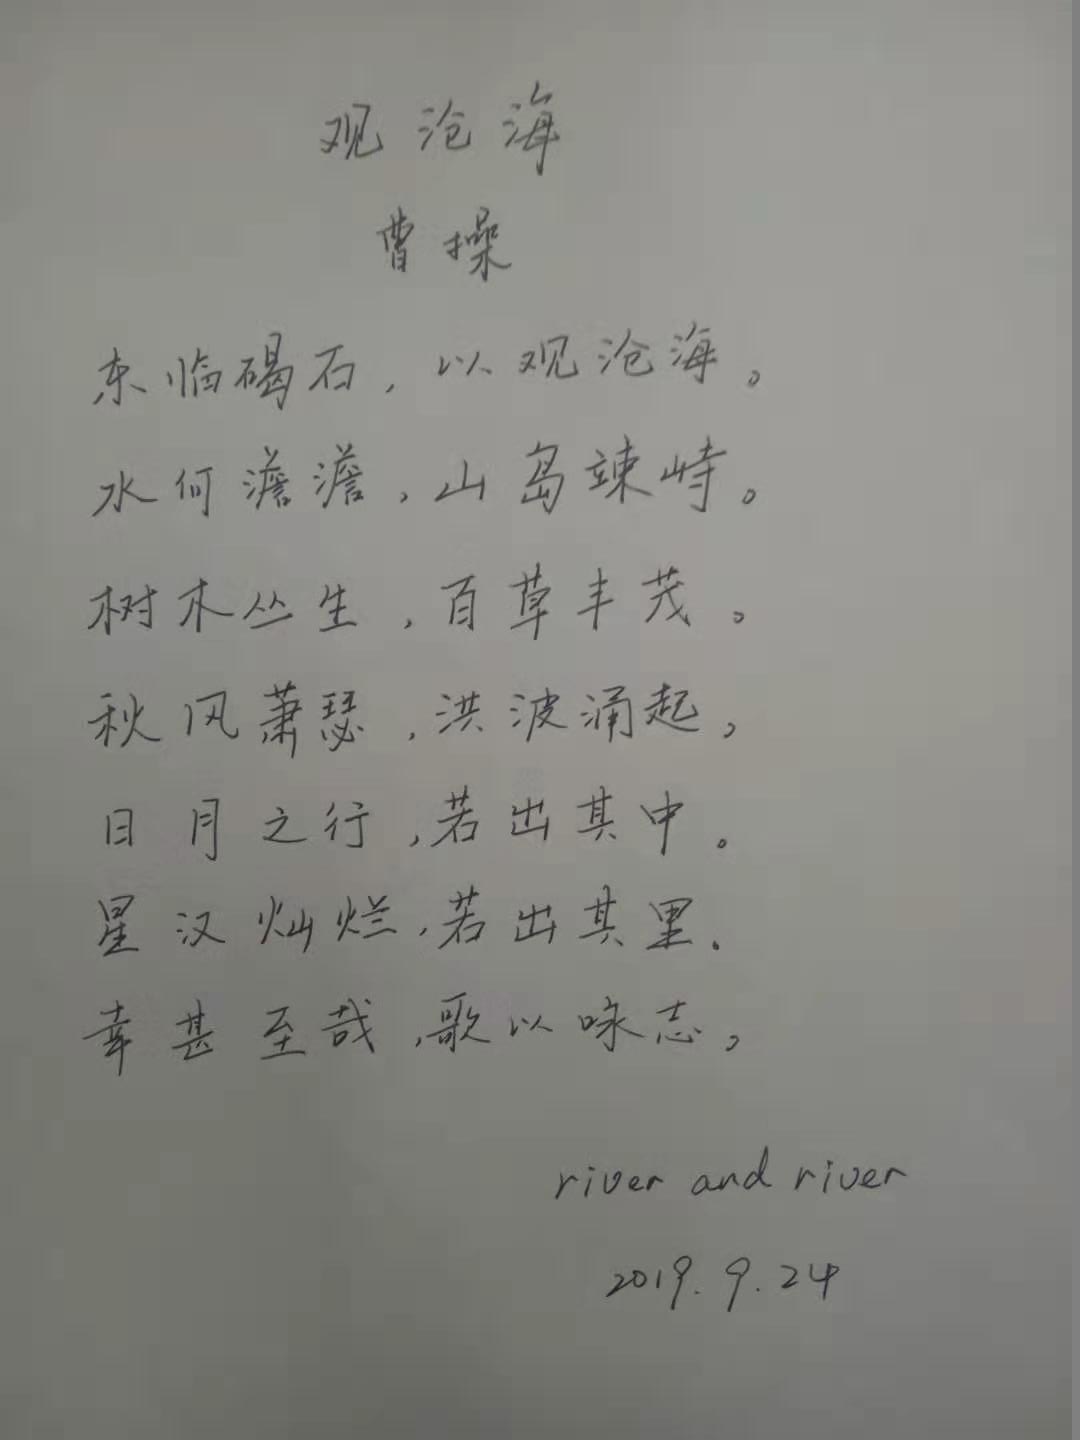 观沧海
曹操
东临碣石，以观沧海。
水何澹澹，山岛竦峙。
树木丛生，百草丰茂。
秋风萧瑟，洪波涌起，
日月之行，若出其中。
星汉灿烂，若出其里.
幸甚至哉，歌以咏志，
river and river
2019.9.24